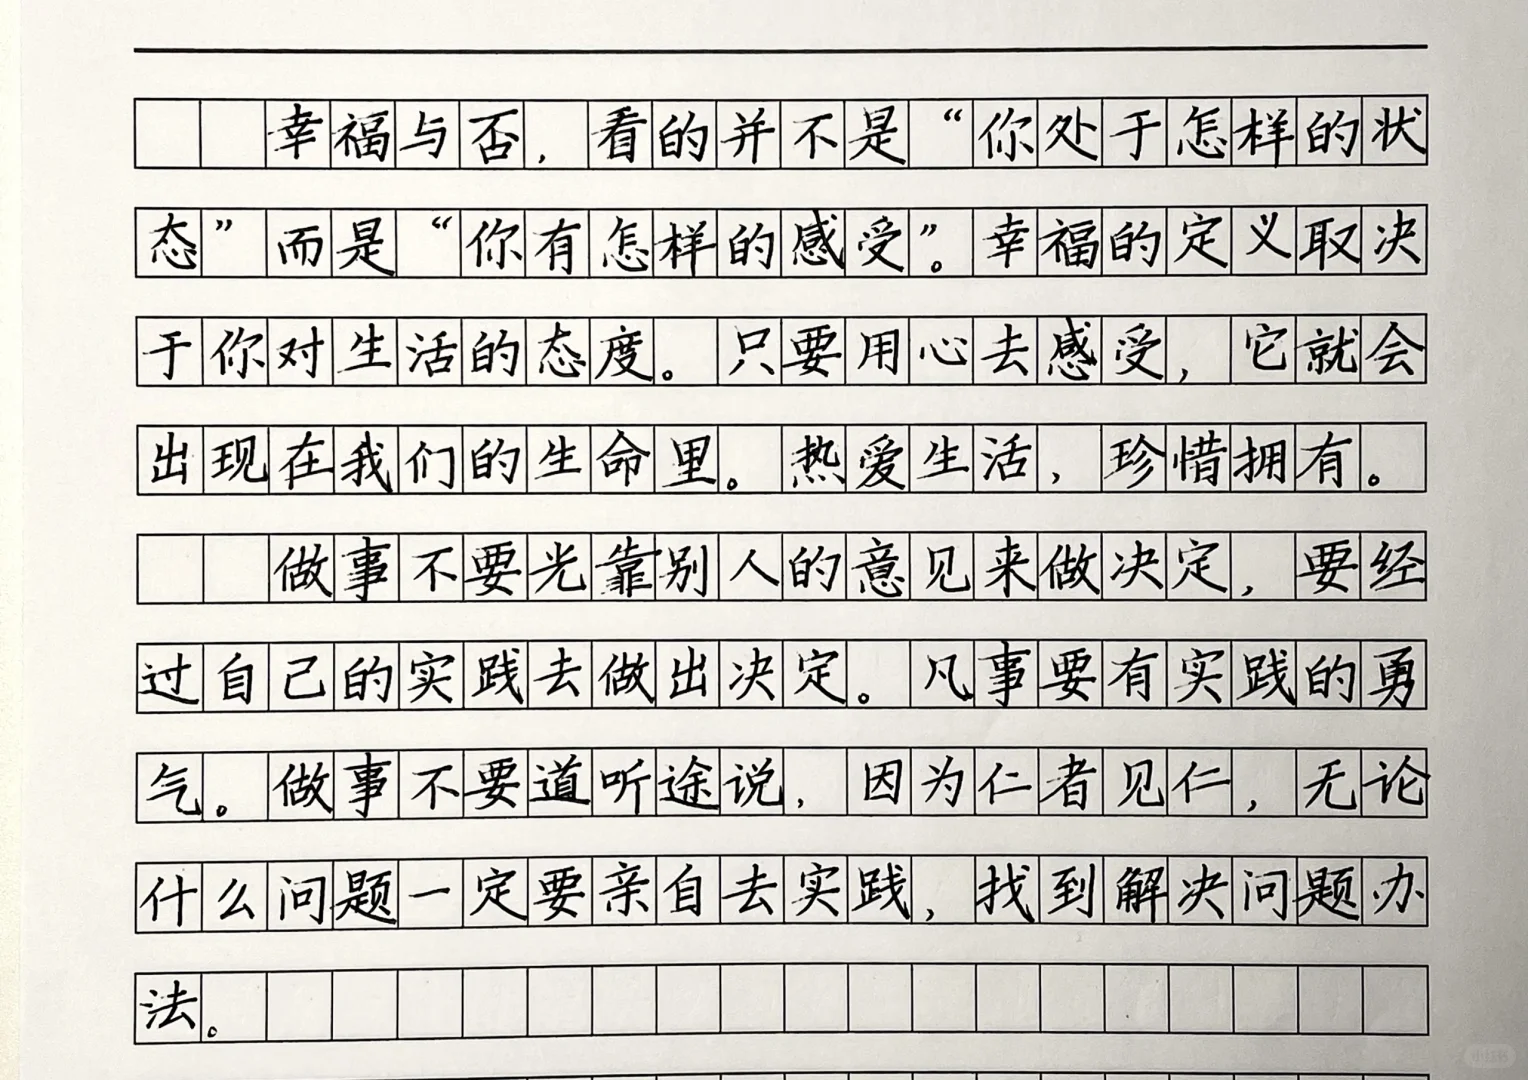 幸福与否，看的并不是“你处于怎样的状
态”而是“你有怎样的感受”。幸福的定义取决
于你对生活的态度。只要用心去感受，它就会
出现在我们的生命里。热爱生活，珍惜拥有。
做事不要光靠别人的意见来做决定，要经
过自己的实践去做出决定。凡事要有实践的勇
气。做事不要道听途说，因为仁者见仁，无论
什么问题一定要亲自去实践，找到解决问题办
法。
小红书